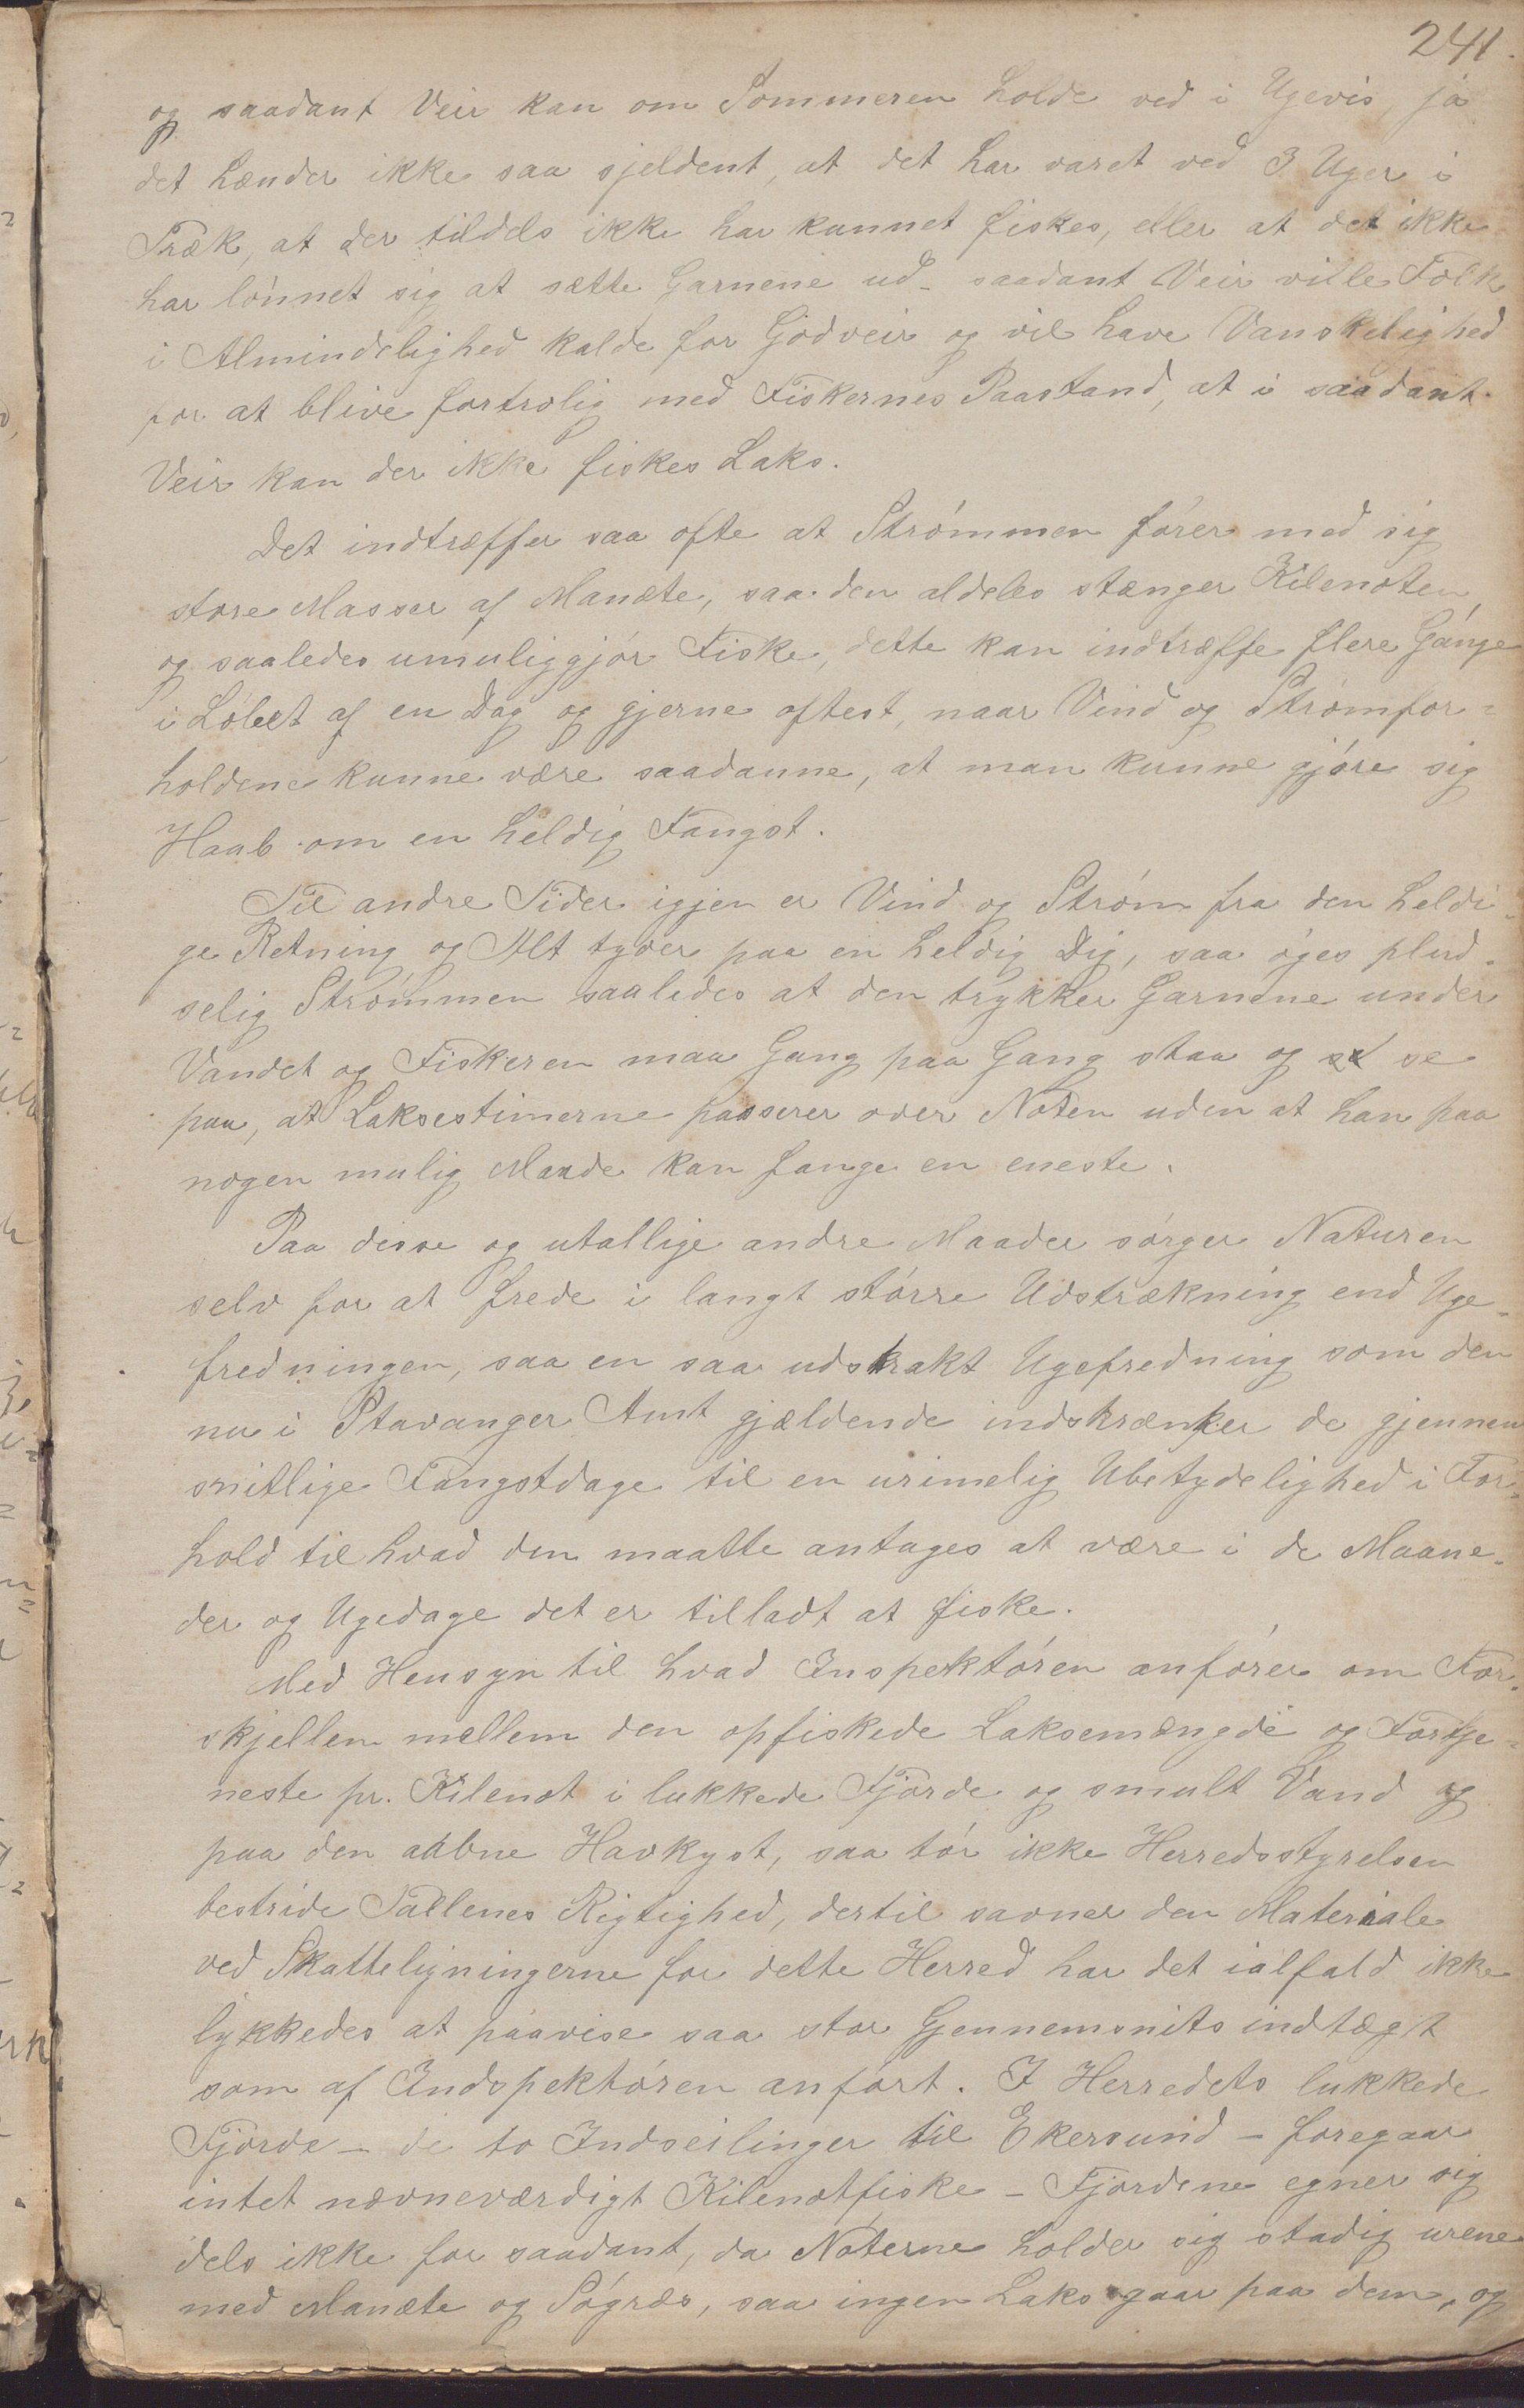 241.
og saadant Veir kan om Sommeren holde ved i Ugevis, ja
det hænder ikke saa sjeldent, at det har varet ved 3 Uger i
Træk, at der tildels ikke har kunnet fiskes, eller at det ikke
har lónnet sig at sætte Garnene ud – saadant Veir ville Folk
i Almindelighed kalde for Godveir og vil have Vanskelighed
for at blive fortrolig med Fiskernes Paastand, at i saadant
Veir kan der ikke fiskes Laks.
Det indtræffer saa ofte at Strómmen fórer med sig
store Masser af Manæte, saa den aldeles stænger Kilenoten,
og saaledes umuliggjór Fiske, dette kan indtræffe flere Gange
i Lóbet af en Dag og gjerne oftest, naar Vind og Strómfor=
holdene kunne være saadanne, at man kunne gjóre sig
Haab om en heldig Fangst.
Til andre Tider igjen er Vind og Stróm fra den heldi-
ge Retning og Alt tyder paa en heldig Dag, saa óges plud-
selig Strómmen saaledes at den trykker Garnene under
Vandet og Fiskeren maa Gang paa Gang staa og se
paa, at Laksestimerne passerer over Noten uden at han paa
nogen mulig Maade kan fange en eneste.
Paa disse og utallige andre Maader sórger Naturen
selv for at frede i langt stórre Udstrækning end Uge-
fredningen, saa en saa udstrakt Ugefredning som den
nu i Stavanger Amt gjældende indskrænker de gjennem
snitlige Fangstdage til en urimelig Ubetydelighed i For-
hold til hvad den maatte antages at være i de Maane-
der og Ugedage det er tilladt at fiske.
Med Hensyn til hvad Inspektóren anfórer om For-
skjellen mellem den opfiskede Laksemængde og Fortje-
neste pr. Kilenot i lukkede Fjorde og smult Vand og
paa den aabne Havkyst, saa tór ikke Herredsstyrelsen
bestride Tallenes Rigtighed, dertil savner den Materiale
ved Skatteligningerne for dette Herred har det ialfald ikke
lykkedes at paavise saa stor Gjennemsnits indtægt
som af Indspektóren anfórt. I Herredets lukkede
Fjorde – de to Indseilinger til Ekersund – foregaar
intet nævneværdigt Kilenotfiske – Fjordene egner sig
dels ikke for saadant, da Nóterne holder sig stadig urene
med Manæte og Sógræs, saa ingen Laks gaar paa dem, og